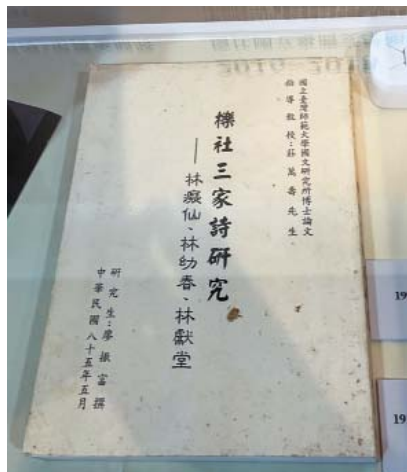 國立臺灣師範大學國文研究所博士論文
指導教授：莊萬壽先生
櫟社三家詩研究
——林癡仙、林幼春、林獻堂
研究生：廖振富撰
中華民國八十五年五月
19
19